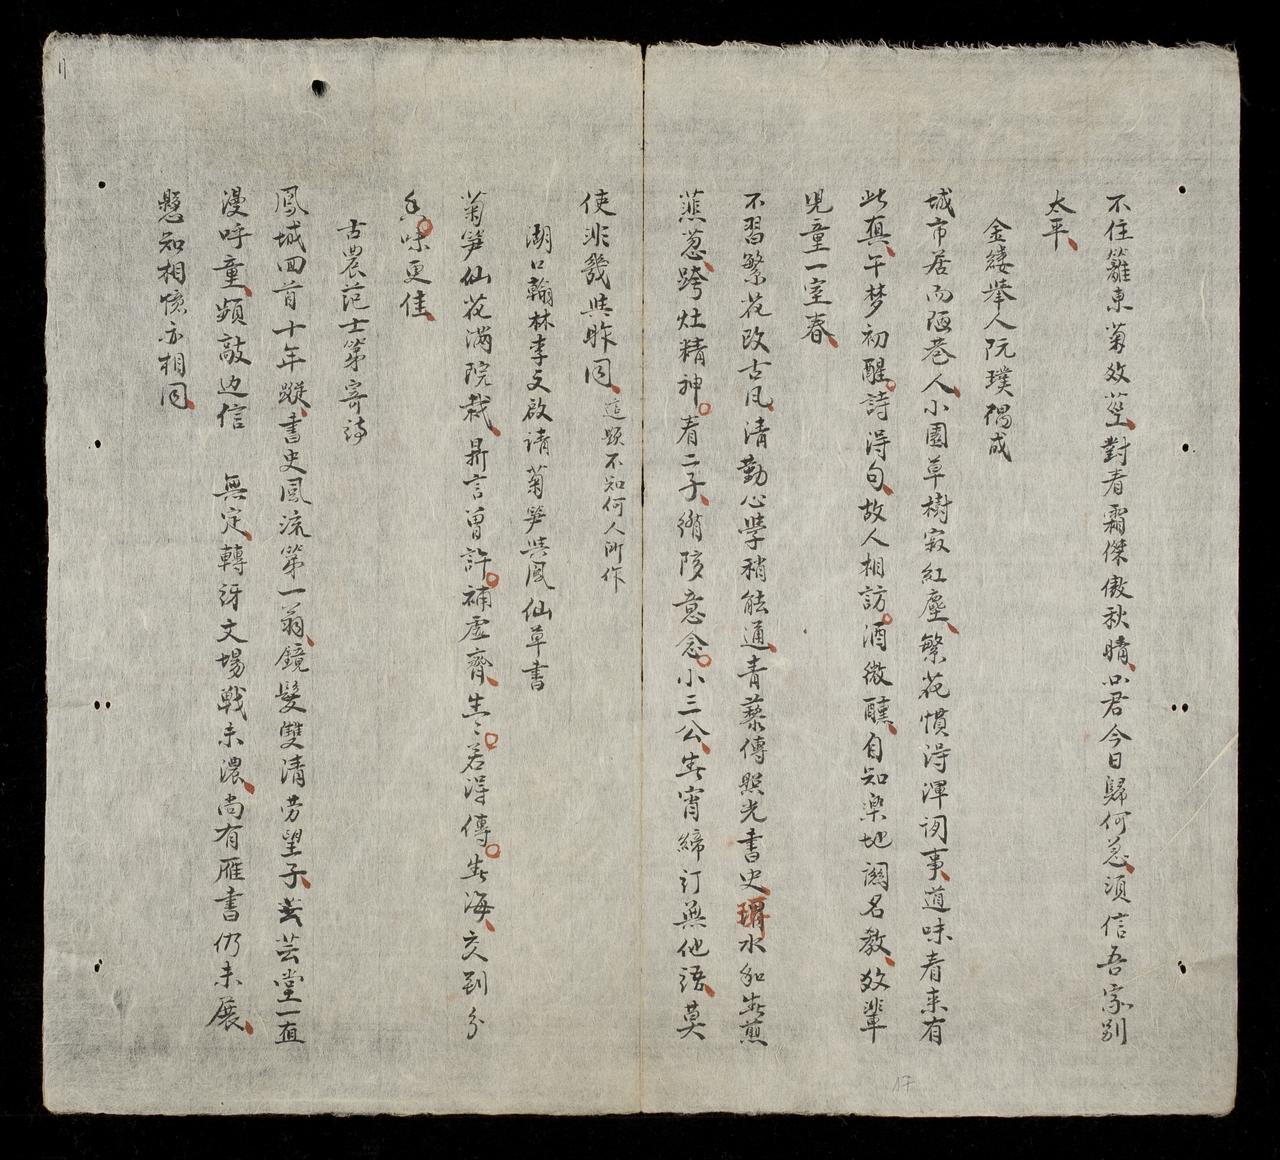 不住籬東菊效莖對看霜傑傲秋晴只君今日歸何急須信吾家别
太平
金縷舉人阮璞偶成
城市居而陋巷人小園草樹寂紅塵繁花慣得渾閑事道味看来有
此真午梦初醒詩得句故人相訪酒微醺自知樂地關名教效輩
児童一室春
不習繁花改古風清勤心學稍能通青藜傳照光書史水和煎
蕉葱跨灶精神看二子綃陔意念小三公宵締訂無他語莫
使非幾與昨同這題不知何人所作
湖口翰林李文啟請菊笋與鳳仙草書
菊笋仙花滿院栽鼎言曽許補虚齋生々若得傳海交到分
香味更佳
古農范士第寄詩
鳳城回首十年蹤書史風流第一翁鏡髮雙清劳望子芸堂一直
漫呼童頻敲边信 無定轉訝文場戰未濃尚有雁書仍未展
懸知相憶亦相同
17